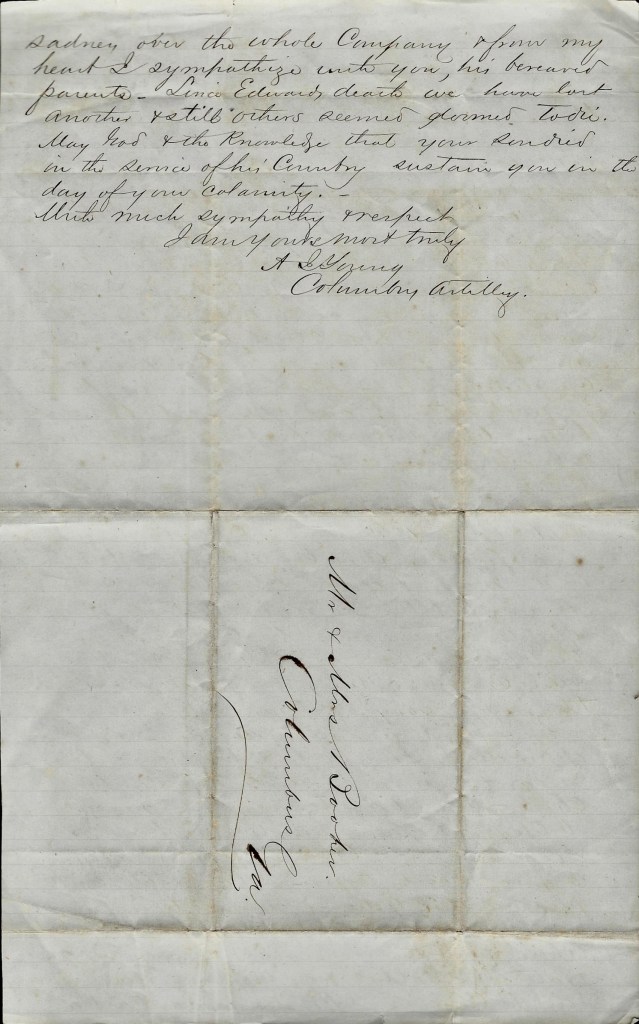 sadness over the whole Company & from my
heart I sympathize with you, his bereaved
parents - Since Edwards death we have lost
another & still others seemed doomed to die.
May God & the Knowledge that your son died
in the service of his Country sustain you in the
day of your calamity. -
With much sympathy & respect
I am Yours most truly
A I Young
Columbus Artillery.
Mr & Mrs Booher.
Columbus Ga.